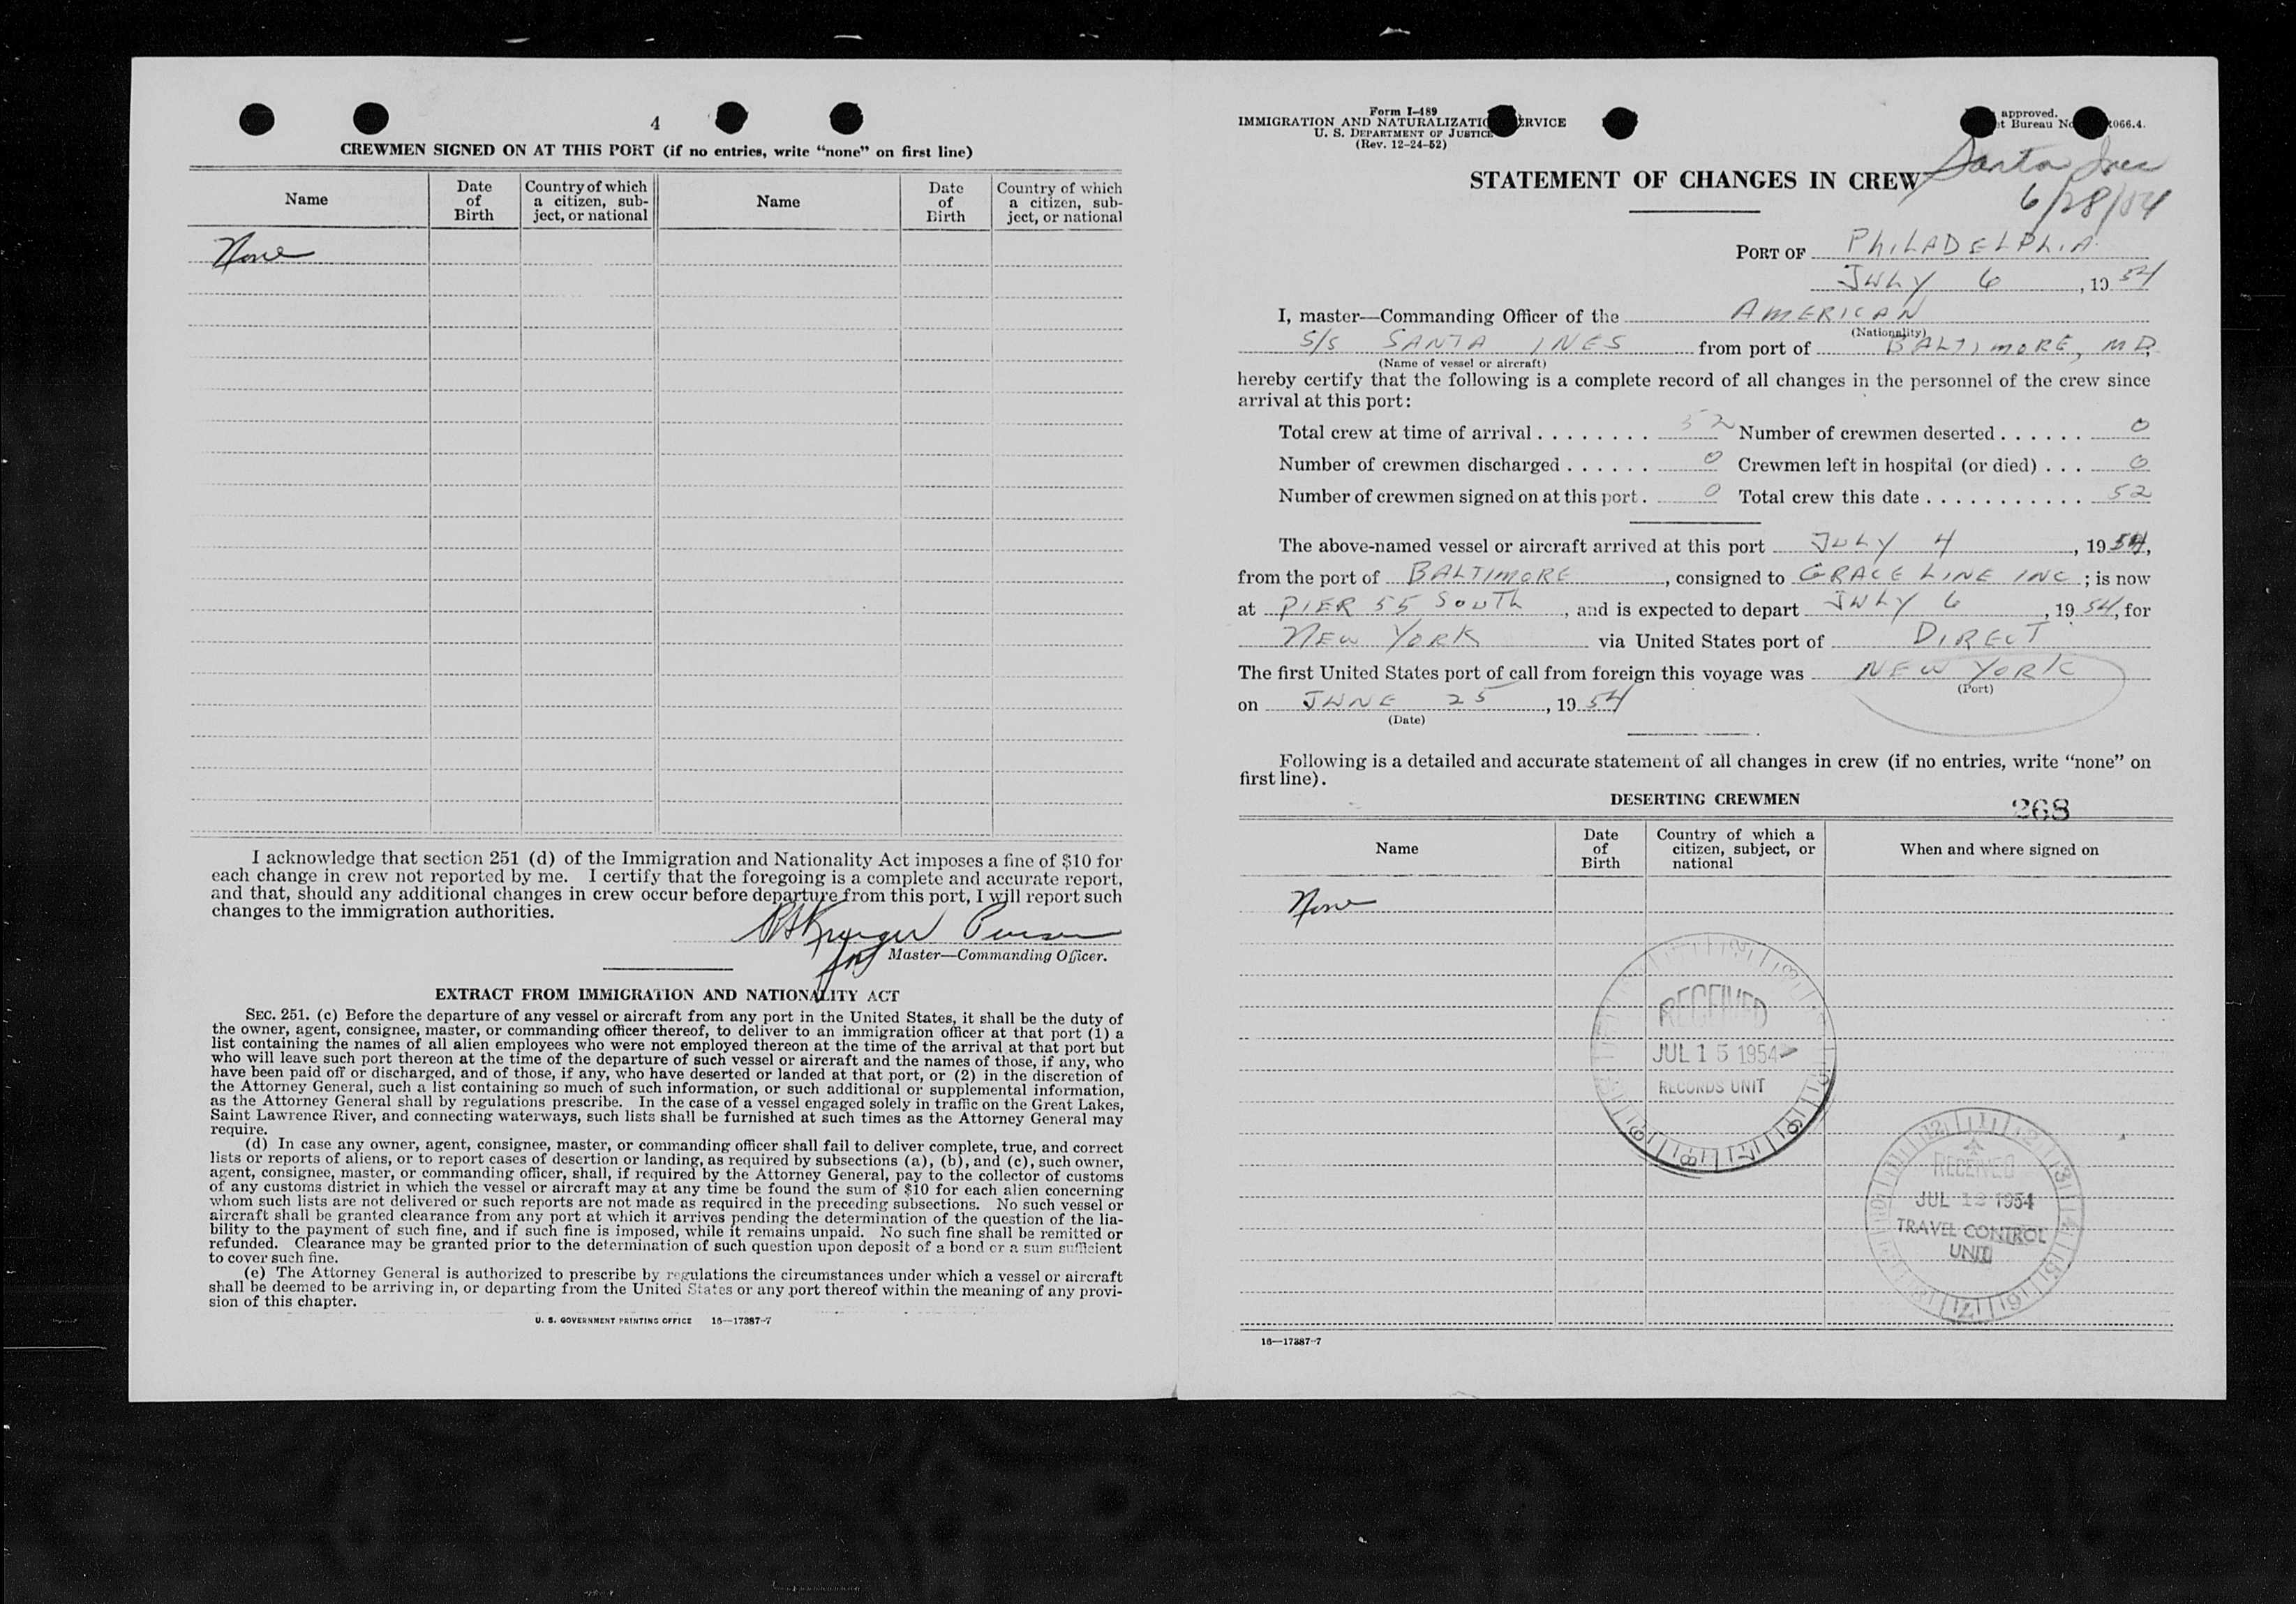 4
CREWMEN SIGNED ON AT THIS PORT (if no entries, write "none" on first line)
Name | Date of Birth | Country of which a citizen, subject, or national | Name | Date of Birth | Country of which a citizen, subject, or national
None
I acknowledge that section 251 (d) of the Immigration and Nationality Act imposes a fine of $10 for
each change in crew not reported by me. I certify that the foregoing is a complete and accurate report,
and that, should any additional changes in crew occur before departure from this port, I will report such
changes to the immigration authorities.
Master—Commanding Officer.
EXTRACT FROM IMMIGRATION AND NATIONALITY ACT
SEC. 251. (c) Before the departure of any vessel or aircraft from any port in the United States, it shall be the duty of
the owner, agent, consignee, master, or commanding officer thereof, to deliver to an immigration officer at that port (1) a
list containing the names of all alien employees who were not employed thereon at the time of the arrival at that port but
who will leave such port thereon at the time of the departure of such vessel or aircraft and the names of those, if any, who
have been paid off or discharged, and of those, if any, who have deserted or landed at that port, or (2) in the discretion of
the Attorney General, such a list containing so much of such information, or such additional or supplemental information,
as the Attorney General shall by regulations prescribe. In the case of a vessel engaged solely in traffic on the Great Lakes,
Saint Lawrence River, and connecting waterways, such lists shall be furnished at such times as the Attorney General may
require.
(d) In case any owner, agent, consignee, master, or commanding officer shall fail to deliver complete, true, and correct
lists or reports of aliens, or to report cases of desertion or landing, as required by subsections (a), (b), and (c), such owner,
agent, consignee, master, or commanding officer, shall, if required by the Attorney General, pay to the collector of customs
of any customs district in which the vessel or aircraft may at any time be found the sum of $10 for each alien concerning
whom such lists are not delivered or such reports are not made as required in the preceding subsections. No such vessel or
aircraft shall be granted clearance from any port at which it arrives pending the determination of the question of the lia-
bility to the payment of such fine, and if such fine is imposed, while it remains unpaid. No such fine shall be remitted or
refunded. Clearance may be granted prior to the determination of such question upon deposit of a bond or a sum sufficient
to cover such fine.
(e) The Attorney General is authorized to prescribe by regulations the circumstances under which a vessel or aircraft
shall be deemed to be arriving in, or departing from the United States or any port thereof within the meaning of any provi-
sion of this chapter.
U. S. GOVERNMENT PRINTING OFFICE 16—17387-7
Form I-489
IMMIGRATION AND NATURALIZATION SERVICE
U. S. DEPARTMENT OF JUSTICE
(Rev. 12-24-52)
approved.
Bureau No. 066.4.
STATEMENT OF CHANGES IN CREW
Santa Ines
6/28/54
PORT OF PHILADELPHIA
JULY 6, 1954
I, master—Commanding Officer of the AMERICAN
(Nationality)
S/S SANTA INES from port of BALTIMORE, MD
(Name of vessel or aircraft)
hereby certify that the following is a complete record of all changes in the personnel of the crew since
arrival at this port:
Total crew at time of arrival 52 Number of crewmen deserted 0
Number of crewmen discharged 0 Crewmen left in hospital (or died) 0
Number of crewmen signed on at this port 0 Total crew this date 52
The above-named vessel or aircraft arrived at this port JULY 4, 1954,
from the port of BALTIMORE, consigned to GRACE LINE INC; is now
at PIER 55 SOUTH, and is expected to depart JULY 6, 1954, for
NEW YORK via United States port of DIRECT
The first United States port of call from foreign this voyage was NEW YORK
(Port)
on JUNE 25, 1954
(Date)
Following is a detailed and accurate statement of all changes in crew (if no entries, write "none" on
first line).
DESERTING CREWMEN
268
Name | Date of Birth | Country of which a citizen, subject, or national | When and where signed on
None
RECEIVED
JUL 15 1954
RECORDS UNIT
RECEIVED
JUL 1954
TRAVEL CONTROL
UNIT
16—17387-7